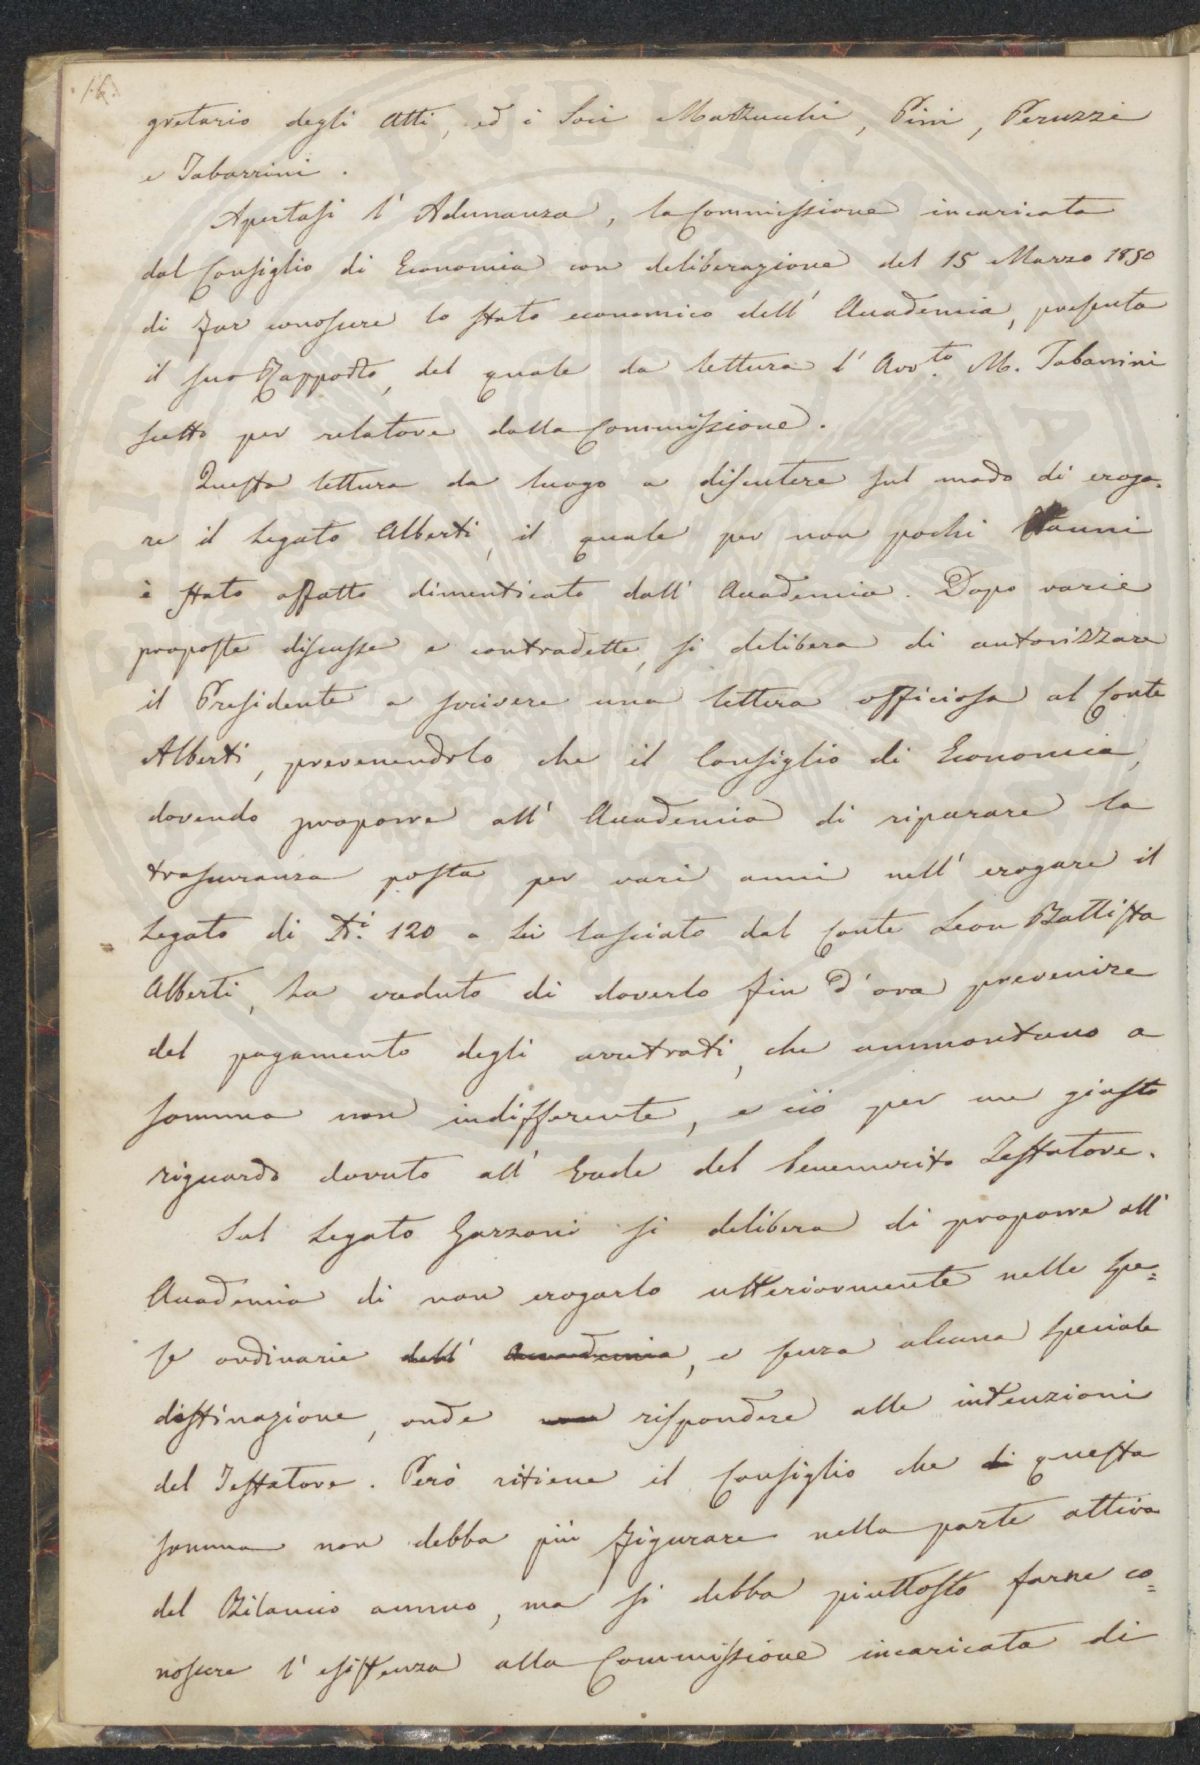 16.
gretario degli Atti, ed i Soci Mazzucchi, Pini, Peruzzi
e Tabarrini.
Apertasi l'Adunanza, la Commissione incaricata
dal Consiglio di Economia con deliberazione del 15 Marzo 1850
di far conoscere lo stato economico dell'Accademia, presenta
il suo Rapporto, del quale da lettura l'Avv.to M. Tabarrini
scelto per relatore dalla Commissione.
Questa lettura da luogo a discutere sul modo di eroga-
re il Legato Alberti, il quale per non pochi anni
è stato affatto dimenticato dall'Accademia. Dopo varie
proposte discusse e contradette, si delibera di autorizzare
il Presidente a scrivere una lettera officiosa al Conte
Alberti, prevenendolo che il Consiglio di Economia,
dovendo proporre all'Accademia di riparare la
trascuranza posta per vari anni nell'erogare il
Legato di Di. 120 a Lei lasciato dal Conte Leon Battista
Alberti, ha creduto di doverlo fin d'ora prevenire
del pagamento degli arretrati, che ammontano a
somma non indifferente, e ciò per un giusto
riguardo dovuto all'Erede del benemerito Testatore.
Sul Legato Garzoni si delibera di proporre all'
Accademia di non erogarlo ulteriormente nelle spe=
se ordinarie dell'Accademia, e senza alcuna speciale
destinazione, onde non rispondere alle intenzioni
del Testatore. Però ritiene il Consiglio che di questa
somma non debba più figurare nella parte attiva
del Bilancio annuo, ma si debba piuttosto farne co=
noscere l'esistenza alla Commissione incaricata di